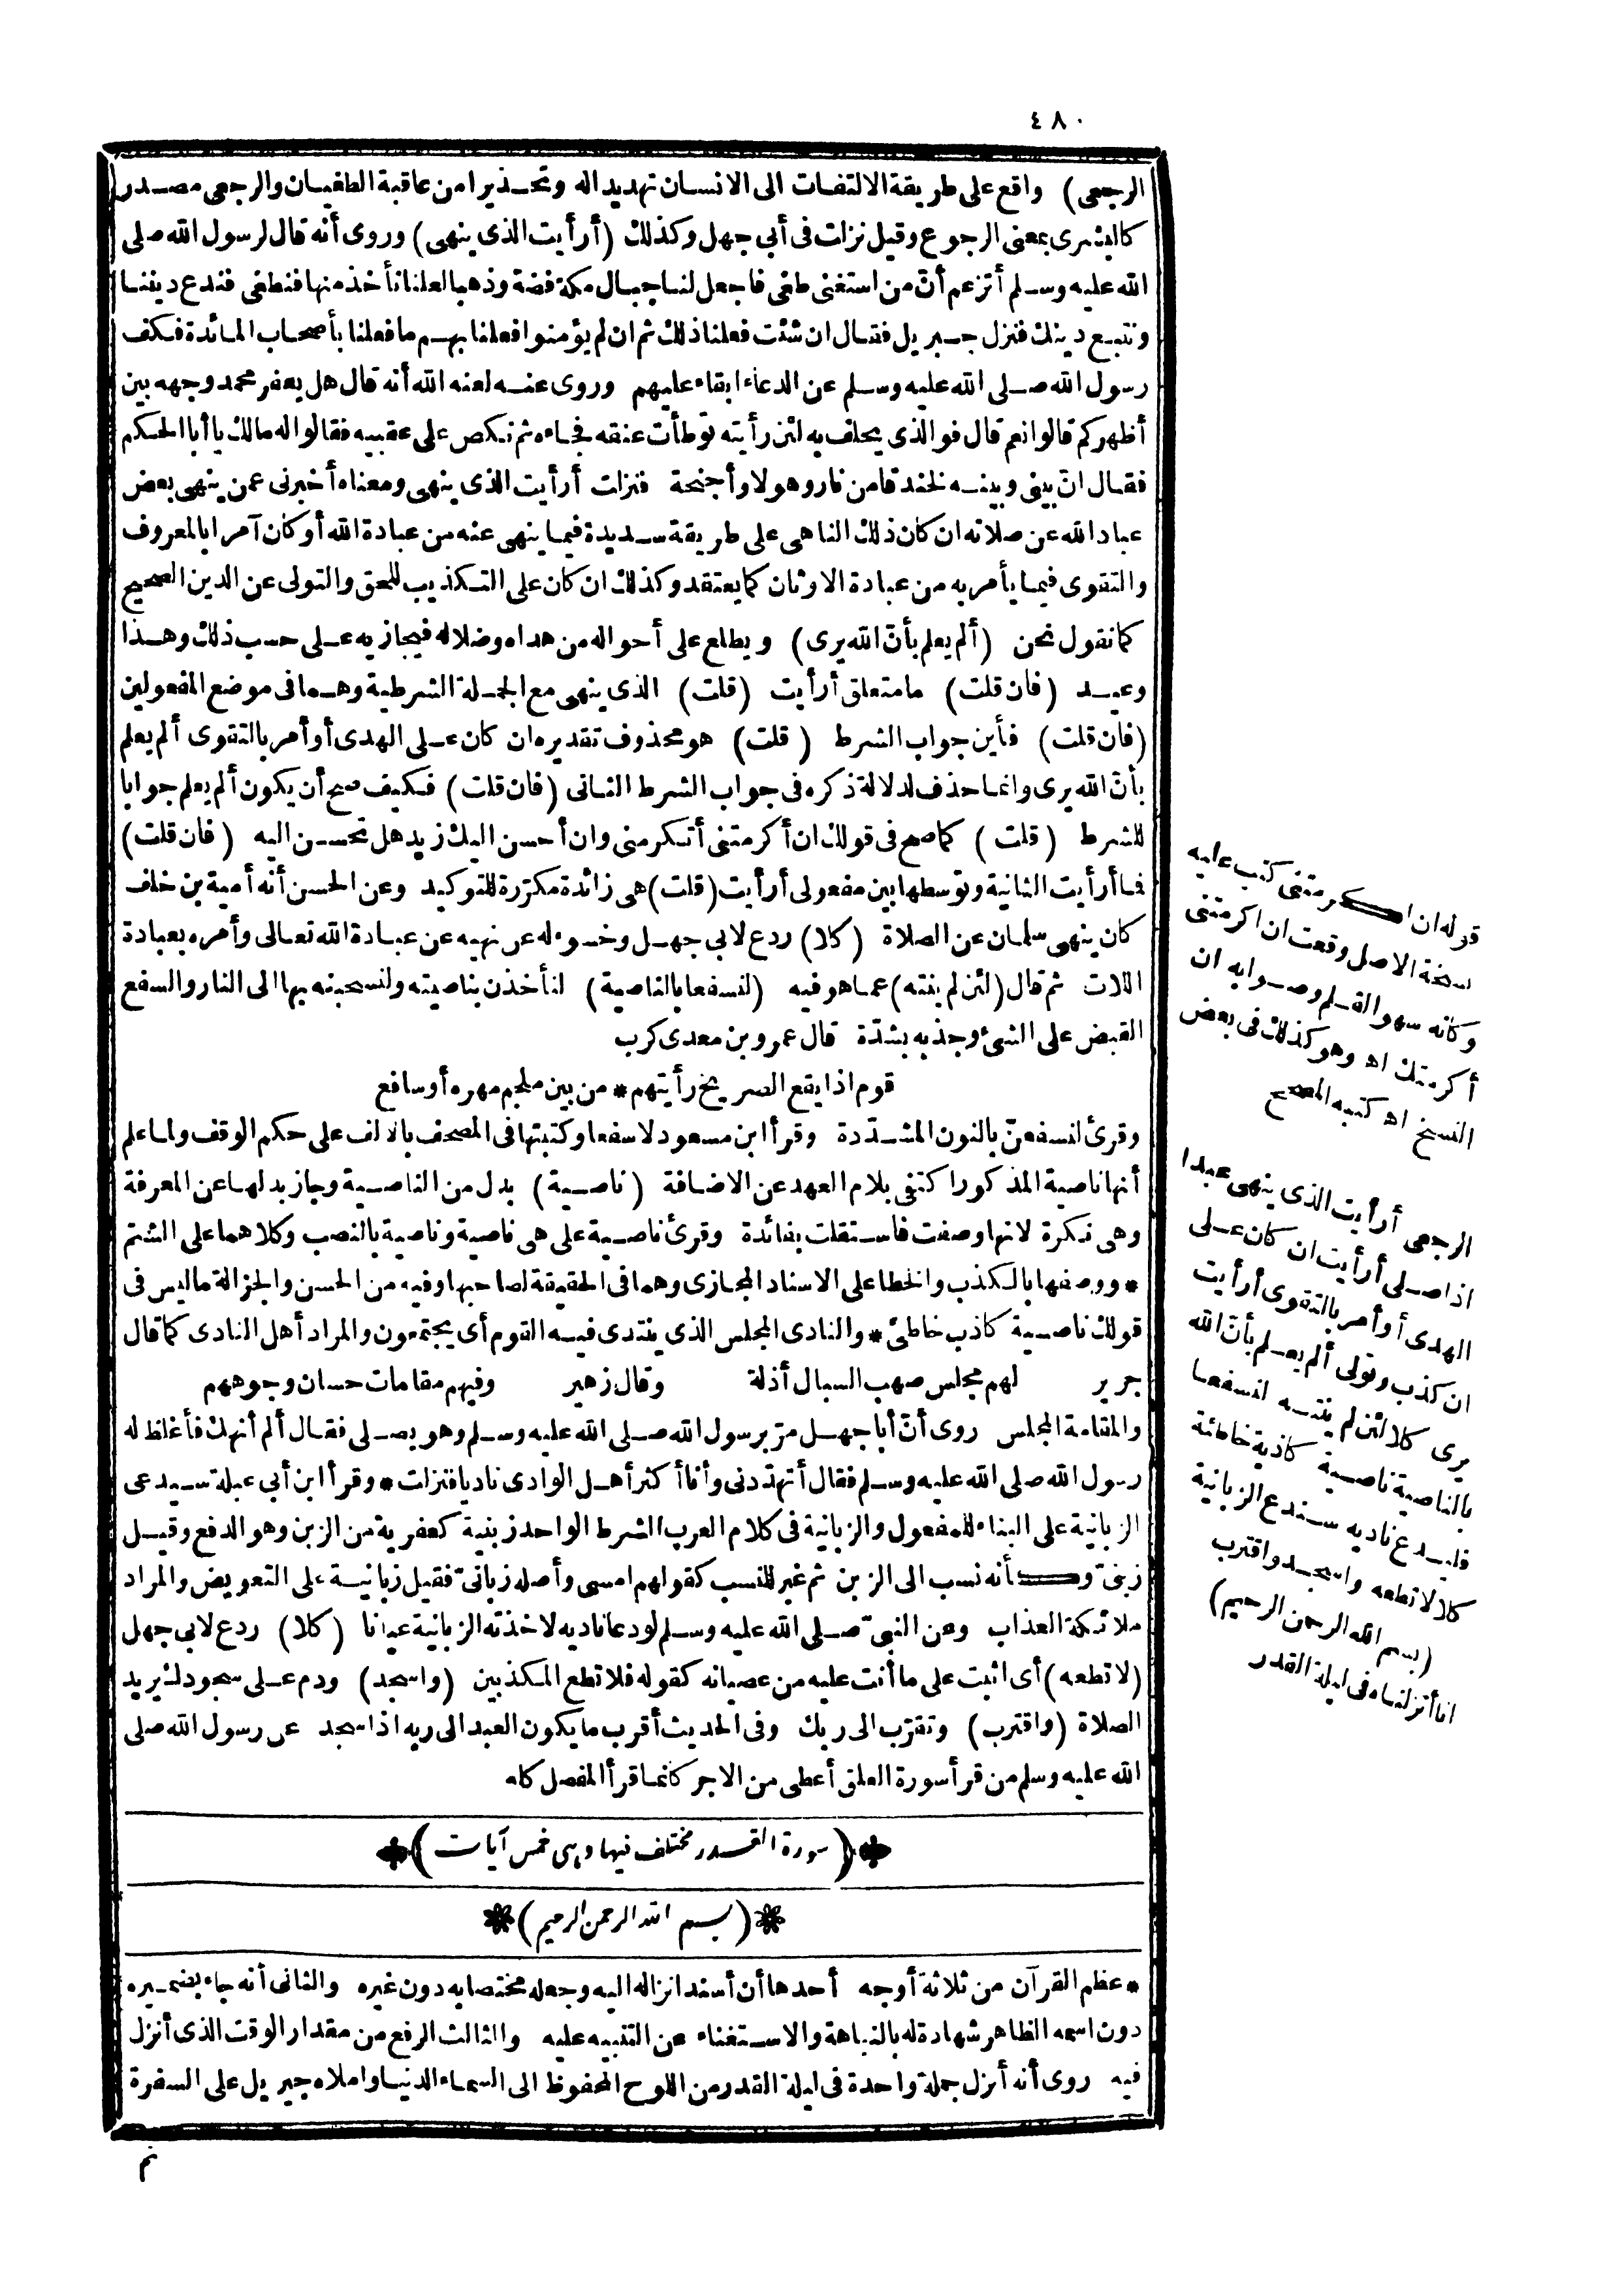 ٤٨٠
الرجعى) واقع على طريقة الالتفات الى الانسان تهديدا له وتحـذيرا من عاقبة الطغيـان والرجعى مصـدر
كالبشرى بمعنى الرجوع وقيل نزلت فى أبى جهل وكذلك (أرأيت الذى ينهى) وروى أنه قال لرسول الله صلى
الله عليه وسـلم أتزعم أنّ من استغنى طغى فاجعل لنـا جبـال مكة فضة وذهبا لعلنا نأخذ منها فنطغى فندع ديننـا
ونتبـع دينك فنزل جـبريل فقـال ان شئت فعلنا ذلك ثم ان لم يؤمنوا فعلنا بهـم ما فعلنا بأصحاب المـائدة فـكف
رسول الله صـلى الله عليه وسـلم عن الدعاء ابقاء عليهم وروى عنـه لعنه الله أنه قال هل يعفر محمد وجهه بين
أظهركم قالوا نعم قال فوالذى يحلف به لئن رأيته توطأت عنقه فجاءه ثم نـكص على عقبيه فقالوا له مالك يا أبا الحـكم
فقـال انّ بينى وبينـه لخندقا من نار وهولا وأجنحة فنزلت أرأيت الذى ينهى ومعناه أخبرنى عمن ينهى بعض
عباد الله عن صلاته ان كان ذلك الناهى على طريقة سـديدة فيمـا ينهى عنه من عبادة الله أو كان آمرا بالمعروف
والتقوى فيمـا يأمر به من عبادة الاوثان كما يعتقد وكذلك ان كان على التـكذيب للحق والتولى عن الدين الصحيح
كما نقول نحن (ألم يعلم بأنّ الله يرى) ويطلع على أحواله من هداه وضلاله فيجازيه عـلى حسب ذلك وهـذا
وعيـد (فان قلت) ما متعلق أرأيت (قلت) الذى ينهى مع الجمـلة الشرطية وهـما فى موضع المفعولين
(فان قلت) فأين جواب الشرط (قلت) هو محذوف تقديره ان كان عـلى الهدى أو أمر بالتقوى ألم يعلم
بأنّ الله يرى وانمـا حذف لدلالة ذكره فى جواب الشرط الثـانى (فان قلت) فـكيف صح أن يكون ألم يعلم جوابا
للشرط (قلت) كما صح فى قولك ان أكرمتنى أتـكرمنى وان أحسن اليك زيد هل تحسـن اليه (فان قلت)
فمـا أرأيت الثانية وتوسطها بين مفعولى أرأيت (قلت) هى زائدة مكرّرة للتوكيد وعن الحسن أنه أمية بن خلف
كان ينهى سلمان عن الصلاة (كلا) ردع لابى جهـل وخسوء له عن نهيه عن عبـادة الله تعـالى وأمره بعبادة
اللات ثم قال (لئن لم ينته) عمـا هو فيه (لنسفعا بالناصية) لنأخذن بناصيته ولنسحبنه بهـا الى النار والسفع
القبض على الشئ وجذبه بشدّة قال عمرو بن معدى كرب
قوم اذا يقع الصريخ رأيتهم * من بين ملجم مهره أو سافع
وقرئ لنسفعنّ بالنون المشـدّدة وقرأ ابن مسعود لاسفعا وكتبتها فى المصحف بالالف على حكم الوقف ولمـا علم
أنها ناصية المذكور اكتفى بلام العهد عن الاضـافة (ناصـية) بدل من الناصـية وجاز بدلهـا عن المعرفة
وهى نـكرة لانها وصفت فاسـتقلت بفـائدة وقرئ ناصـية على هى ناصية وناصية بالنصب وكلاهما على الشتم
* ووصفها بالـكذب والخطا على الاسناد المجازى وهما فى الحقيقة لصاحبها وفيه من الحسن والجزالة ما ليس فى
قولك ناصـية كاذب خاطئ * والنادى المجلس الذى ينتدى فيـه القوم أى يجتمعون والمراد أهل النادى كما قال
جرير لهم مجلس صهب السبال أذلة وقال زهير وفيهم مقامات حسان وجوههم
والمقامة المجلس روى أنّ أبا جهـل مرّ برسول الله صـلى الله عليه وسـلم وهو يصـلى فقـال ألم أنهك فأغلظ له
رسول الله صلى الله عليه وسـلم فقال أتهدّدنى وأنا أكثر أهـل الوادى ناديا فنزلت * وقرأ ابن أبى عبلة سـيدعى
الزبانية على البناء للمفعول والزبانية فى كلام العرب الشرط الواحد زبنية كعفرية من الزبن وهو الدفع وقيـل
زبنىّ وكأنه نسب الى الزبن ثم غير للنسب كقولهم امسى وأصله زبانىّ فقيل زبانيـة على التعويض والمراد
ملائكة العذاب وعن النبىّ صـلى الله عليه وسـلم لو دعا ناديه لاخذته الزبانية عيانا (كلا) ردع لابى جهل
(لا تطعه) أى اثبت على ما أنت عليه من عصيانه كقوله فلا تطع المكذبين (واسجد) ودم عـلى سجودك يريد
الصلاة (واقترب) وتقرّب الى ربك وفى الحديث أقرب ما يكون العبد الى ربه اذا سجد عن رسول الله صلى
الله عليه وسلم من قرأ سورة العلق أعطى من الاجر كأنمـا قرأ المفصل كله
(سورة القـدر مختلف فيها وهى خمس آيات)
*(بسم الله الرحمن الرحيم)*
* عظم القرآن من ثلاثة أوجه أحدها أن أسند انزاله اليه وجعله مختصا به دون غيره والثانى أنه جاء بضمـيره
دون اسمه الظاهر شهادة له بالنباهة والاسـتغناء عن التنبيه عليه والثالث الرفع من مقدار الوقت الذى أنزل
فيه روى أنه أنزل جملة واحدة فى ليلة القدر من اللوح المحفوظ الى السمـاء الدنيـا وأملاه جبريل على السفرة
ثم
قوله ان اكرمتنى كتب عليه
نسخة الاصل وقعت ان اكرمتنى
وكأنه سهو القـلم وصـوابه ان
أكرمتك اه وهو كذلك فى بعض
النسخ اه كتبه المصحح
الرجعى أرأيت الذى ينهى عبدا
اذا صـلى أرأيت ان كان عـلى
الهدى أو أمر بالتقوى أرأيت
ان كذب وتولى ألم يعـلم بأنّ الله
يرى كلا لئن لم ينتـه لنسفعـا
بالناصية ناصـية كاذبة خاطئة
فليـدع ناديه سـندع الزبانية
كلا لا تطعه واسجـد واقترب
(بسم الله الرحمن الرحيم)
انا أنزلنـاه فى ليلة القدر